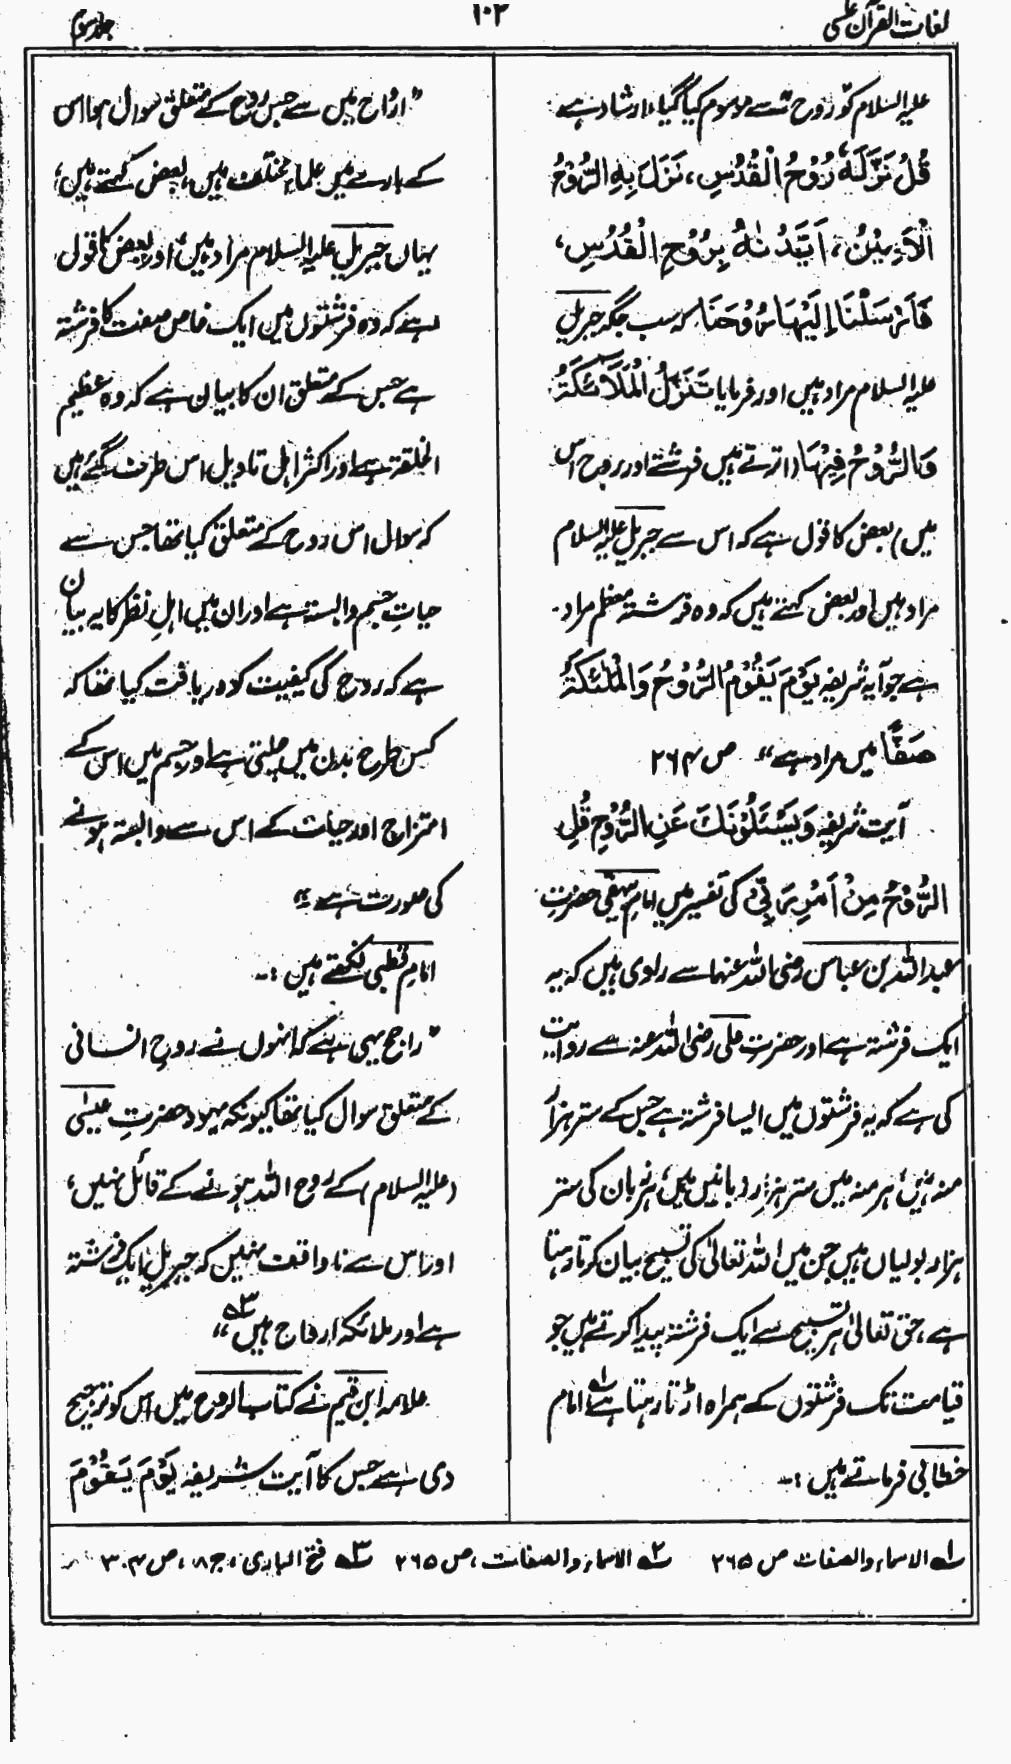 لغات القرآن علسی
۱۰۲
جلد سوم
علیہ السلام کو روح سے موسوم کیا گیا، ارشاد ہے
قُلْ نَزَّلَهٗ رُوْحُ الْقُدُسِ، نَزَلَ بِهِ الرُّوْحُ
الْاَمِیْنُ، اَیَّدْنٰهُ بِرُوْحِ الْقُدُسِ،
فَاَرْسَلْنَا اِلَیْهَا رُوْحَنَا کہ سب جگہ جبریل
علیہ السلام مراد ہیں اور فرمایا تَنَزَّلُ الْمَلٰٓئِكَةُ
وَالرُّوْحُ فِیْهَا (اترتے ہیں فرشتے اور روح اس
میں) بعض کا قول ہے کہ اس سے جبریل علیہ السلام
مراد ہیں اور بعض کہتے ہیں کہ وہ فرشتہ معظم مراد
ہے جو آیہ شریفہ یَوْمَ یَقُوْمُ الرُّوْحُ وَالْمَلٰٓئِكَةُ
صَفًّا میں مراد ہے“ ص ۲۶۴
آیت شریفہ وَیَسْئَلُوْنَكَ عَنِ الرُّوْحِ قُلِ
الرُّوْحُ مِنْ اَمْرِ رَبِّیْ کی تفسیر میں امام بیہقی حضرت
عبداللہ بن عباس رضی اللہ عنہما سے راوی ہیں کہ یہ
ایک فرشتہ ہے اور حضرت علی رضی اللہ عنہ سے روایت
کی ہے کہ یہ فرشتوں میں ایسا فرشتہ ہے جس کے ستر ہزار
منہ ہیں، ہر منہ میں ستر ہزار زبانیں ہیں، ہر زبان کی ستر
ہزار بولیاں ہیں جن میں اللہ تعالیٰ کی تسبیح بیان کرتا رہتا
ہے، حق تعالیٰ ہر تسبیح سے ایک فرشتہ پیدا کرتے ہیں جو
قیامت تک فرشتوں کے ہمراہ اڑتا رہتا ہے۱؎ امام
خطابی فرماتے ہیں :-
”ارواح میں سے جس روح کے متعلق سوال ہوا اس
کے بارے میں علماء مختلف ہیں، بعض کہتے ہیں،
یہاں جبریل علیہ السلام مراد ہیں، اور بعض کا قول
ہے کہ وہ فرشتوں میں ایک خاص صفت کا فرشتہ
ہے جس کے متعلق ان کا بیان ہے کہ وہ عظیم
الخلقۃ ہے اور اکثر اہل تاویل اس طرف گئے ہیں
کہ سوال اس روح کے متعلق کیا تھا جس سے
حیاتِ جسم وابستہ ہے اور ان میں اہلِ نظر کا یہ بیان
ہے کہ روح کی کیفیت کو دریافت کیا تھا کہ
کس طرح بدن میں چلتی ہے اور جسم میں اس کے
امتزاج اور حیات کے اس سے وابستہ ہونے
کی صورت ہے۲؎
امام قطبی لکھتے ہیں :-
”راجح یہی ہے کہ انہوں نے روحِ انسانی
کے متعلق سوال کیا تھا کیونکہ یہود حضرتِ عیسٰی
(علیہ السلام) کے روح اللہ ہونے کے قائل نہیں،
اور اس سے ناواقف نہیں کہ جبریل ایک فرشتہ
ہے اور ملائکہ ارواح ہیں۳؎“
علامہ ابن قیم نے کتاب الروح میں اس کو ترجیح
دی ہے جس کا آیت شریفہ یَوْمَ یَقُوْمُ
۱؎ الاسماء والصفات ص ۲۶۵ ۲؎ الاسماء والصفات، ص ۲۶۵ ۳؎ فتح الباری، ج ۸، ص ۳۰۴